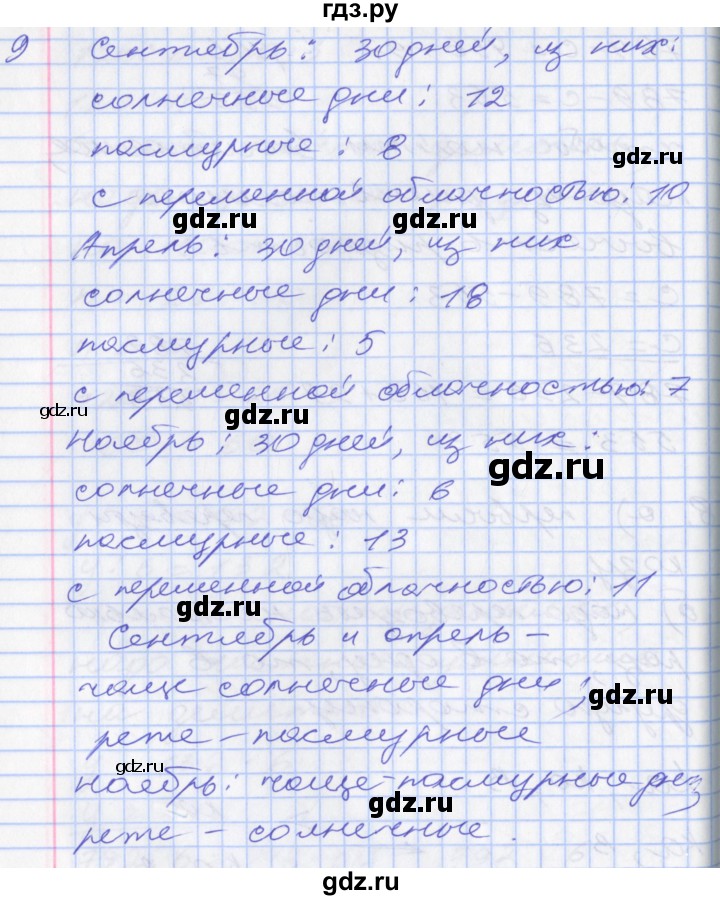 гдз.ру
9 Сентябрь: 30 дней, из них:
солнечные дни: 12
пасмурные: 8
gdz.ru
с переменной облачностью: 10
gdz.ru gdz.ru
Апрель: 30 дней, из них
солнечные дни: 18
gdz.ru
пасмурные: 5
gdz.ru
с переменной облачностью: 7
gdz.ru gdz.ru
Ноябрь: 30 дней, из них:
gdz.ru
солнечные дни: 6
пасмурные: 13
с переменной облачностью: 11
gdz.ru
Сентябрь и апрель –
чаще солнечные дни;
gdz.ru
реже – пасмурные
gdz.ru
ноябрь: чаще – пасмурные
gdz.ru
реже – солнечные.
gdz.ru